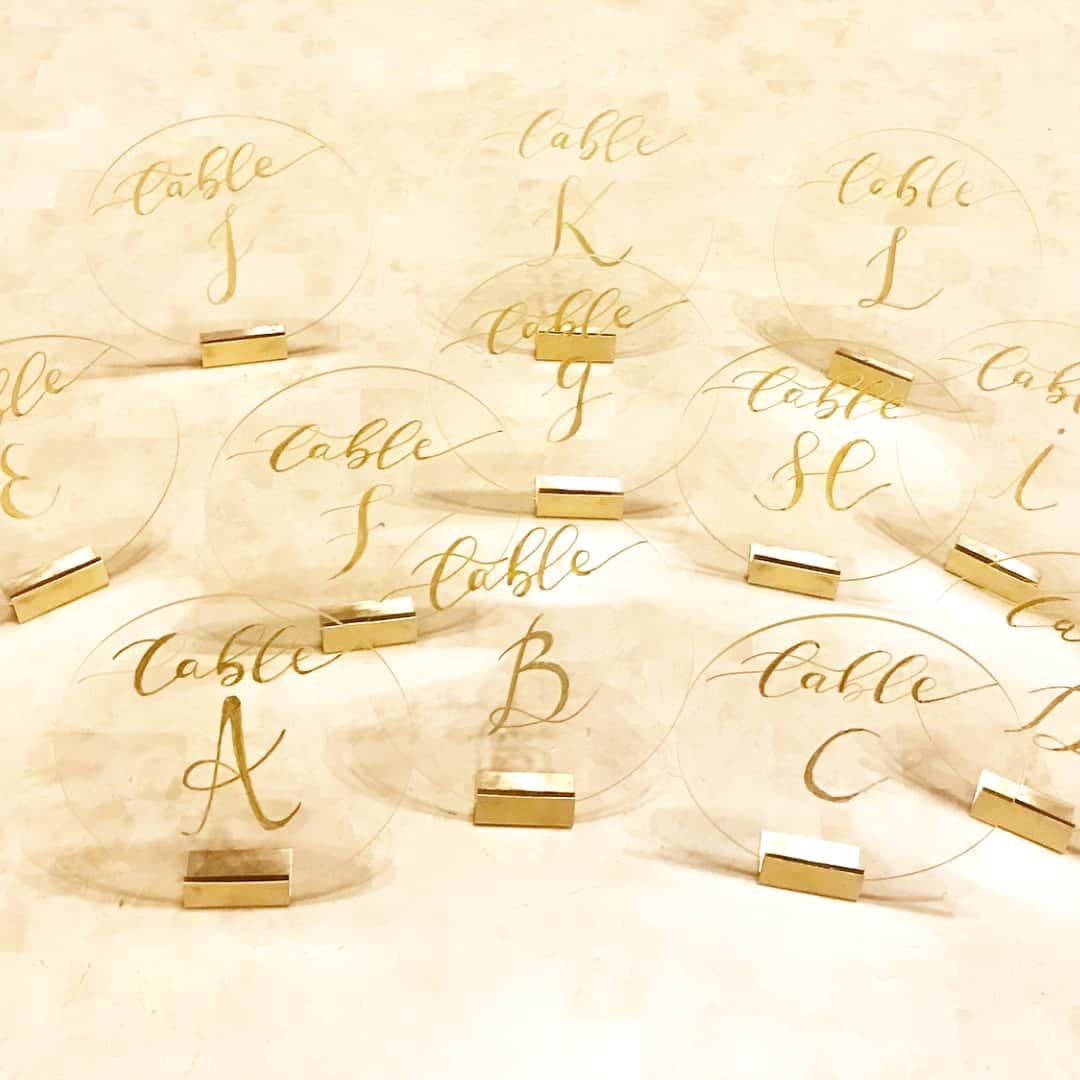 table
J
table
K
table
L
ble
E
table
F
table
g
table
H
tab
i
table
A
table
B
table
C
ta
D